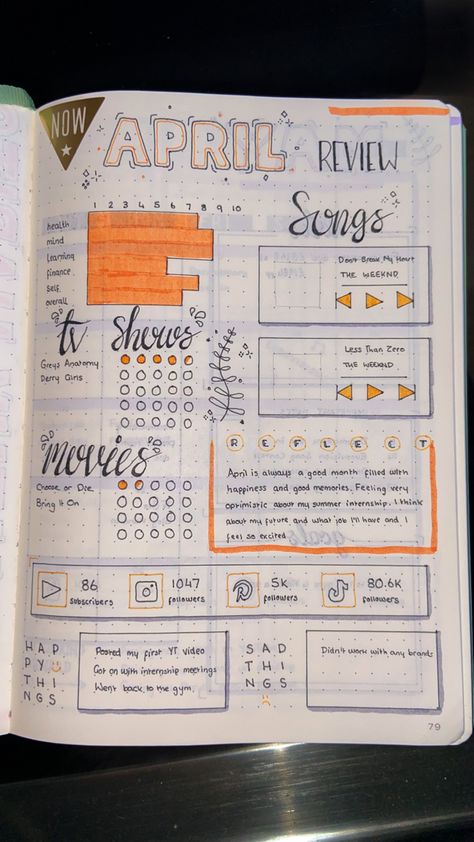 NOW
APRIL REVIEW
1 2 3 4 5 6 7 8 9 10
health
mind
learning
finance
self
overall
Songs
Don't Break My Heart
THE WEEKND
Less Than Zero
THE WEEKND
tv shows
Greys Anatomy
Derry Girls
movies
Choose or Die
Bring It On
REFLECT
April is always a good month filled with
happiness and good memories. Feeling very
optimistic about my summer internship. I think
about my future and what job I'll have and I
feel so excited.
86
subscribers
1047
followers
5K
followers
80.6K
followers
HAP
PY
THI
NGS
Posted my first YT video
Got on with internship meetings
Went back to the gym.
SAD
THI
NGS
Didn't work with any brands
79